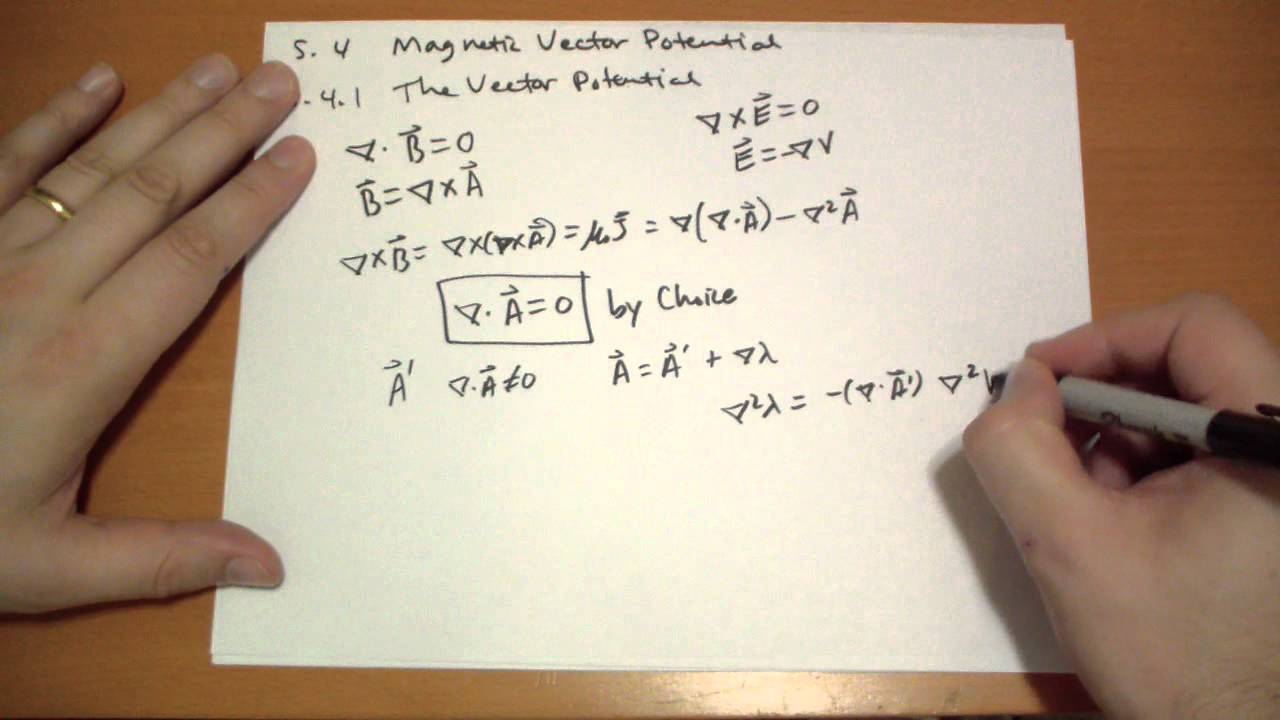 5.4 Magnetic Vector Potential
.4.1 The Vector Potential
∇·B⃗=0
∇×E⃗=0
B⃗=∇×A⃗
E⃗=-∇V
∇×B⃗= ∇×(∇×A⃗)=μ₀J⃗ = ∇(∇·A⃗)-∇²A⃗
∇·A⃗=0 by Choice
A⃗' ∇·A⃗≠0 A⃗=A⃗' + ∇λ
∇²λ = -(∇·A⃗') ∇²V